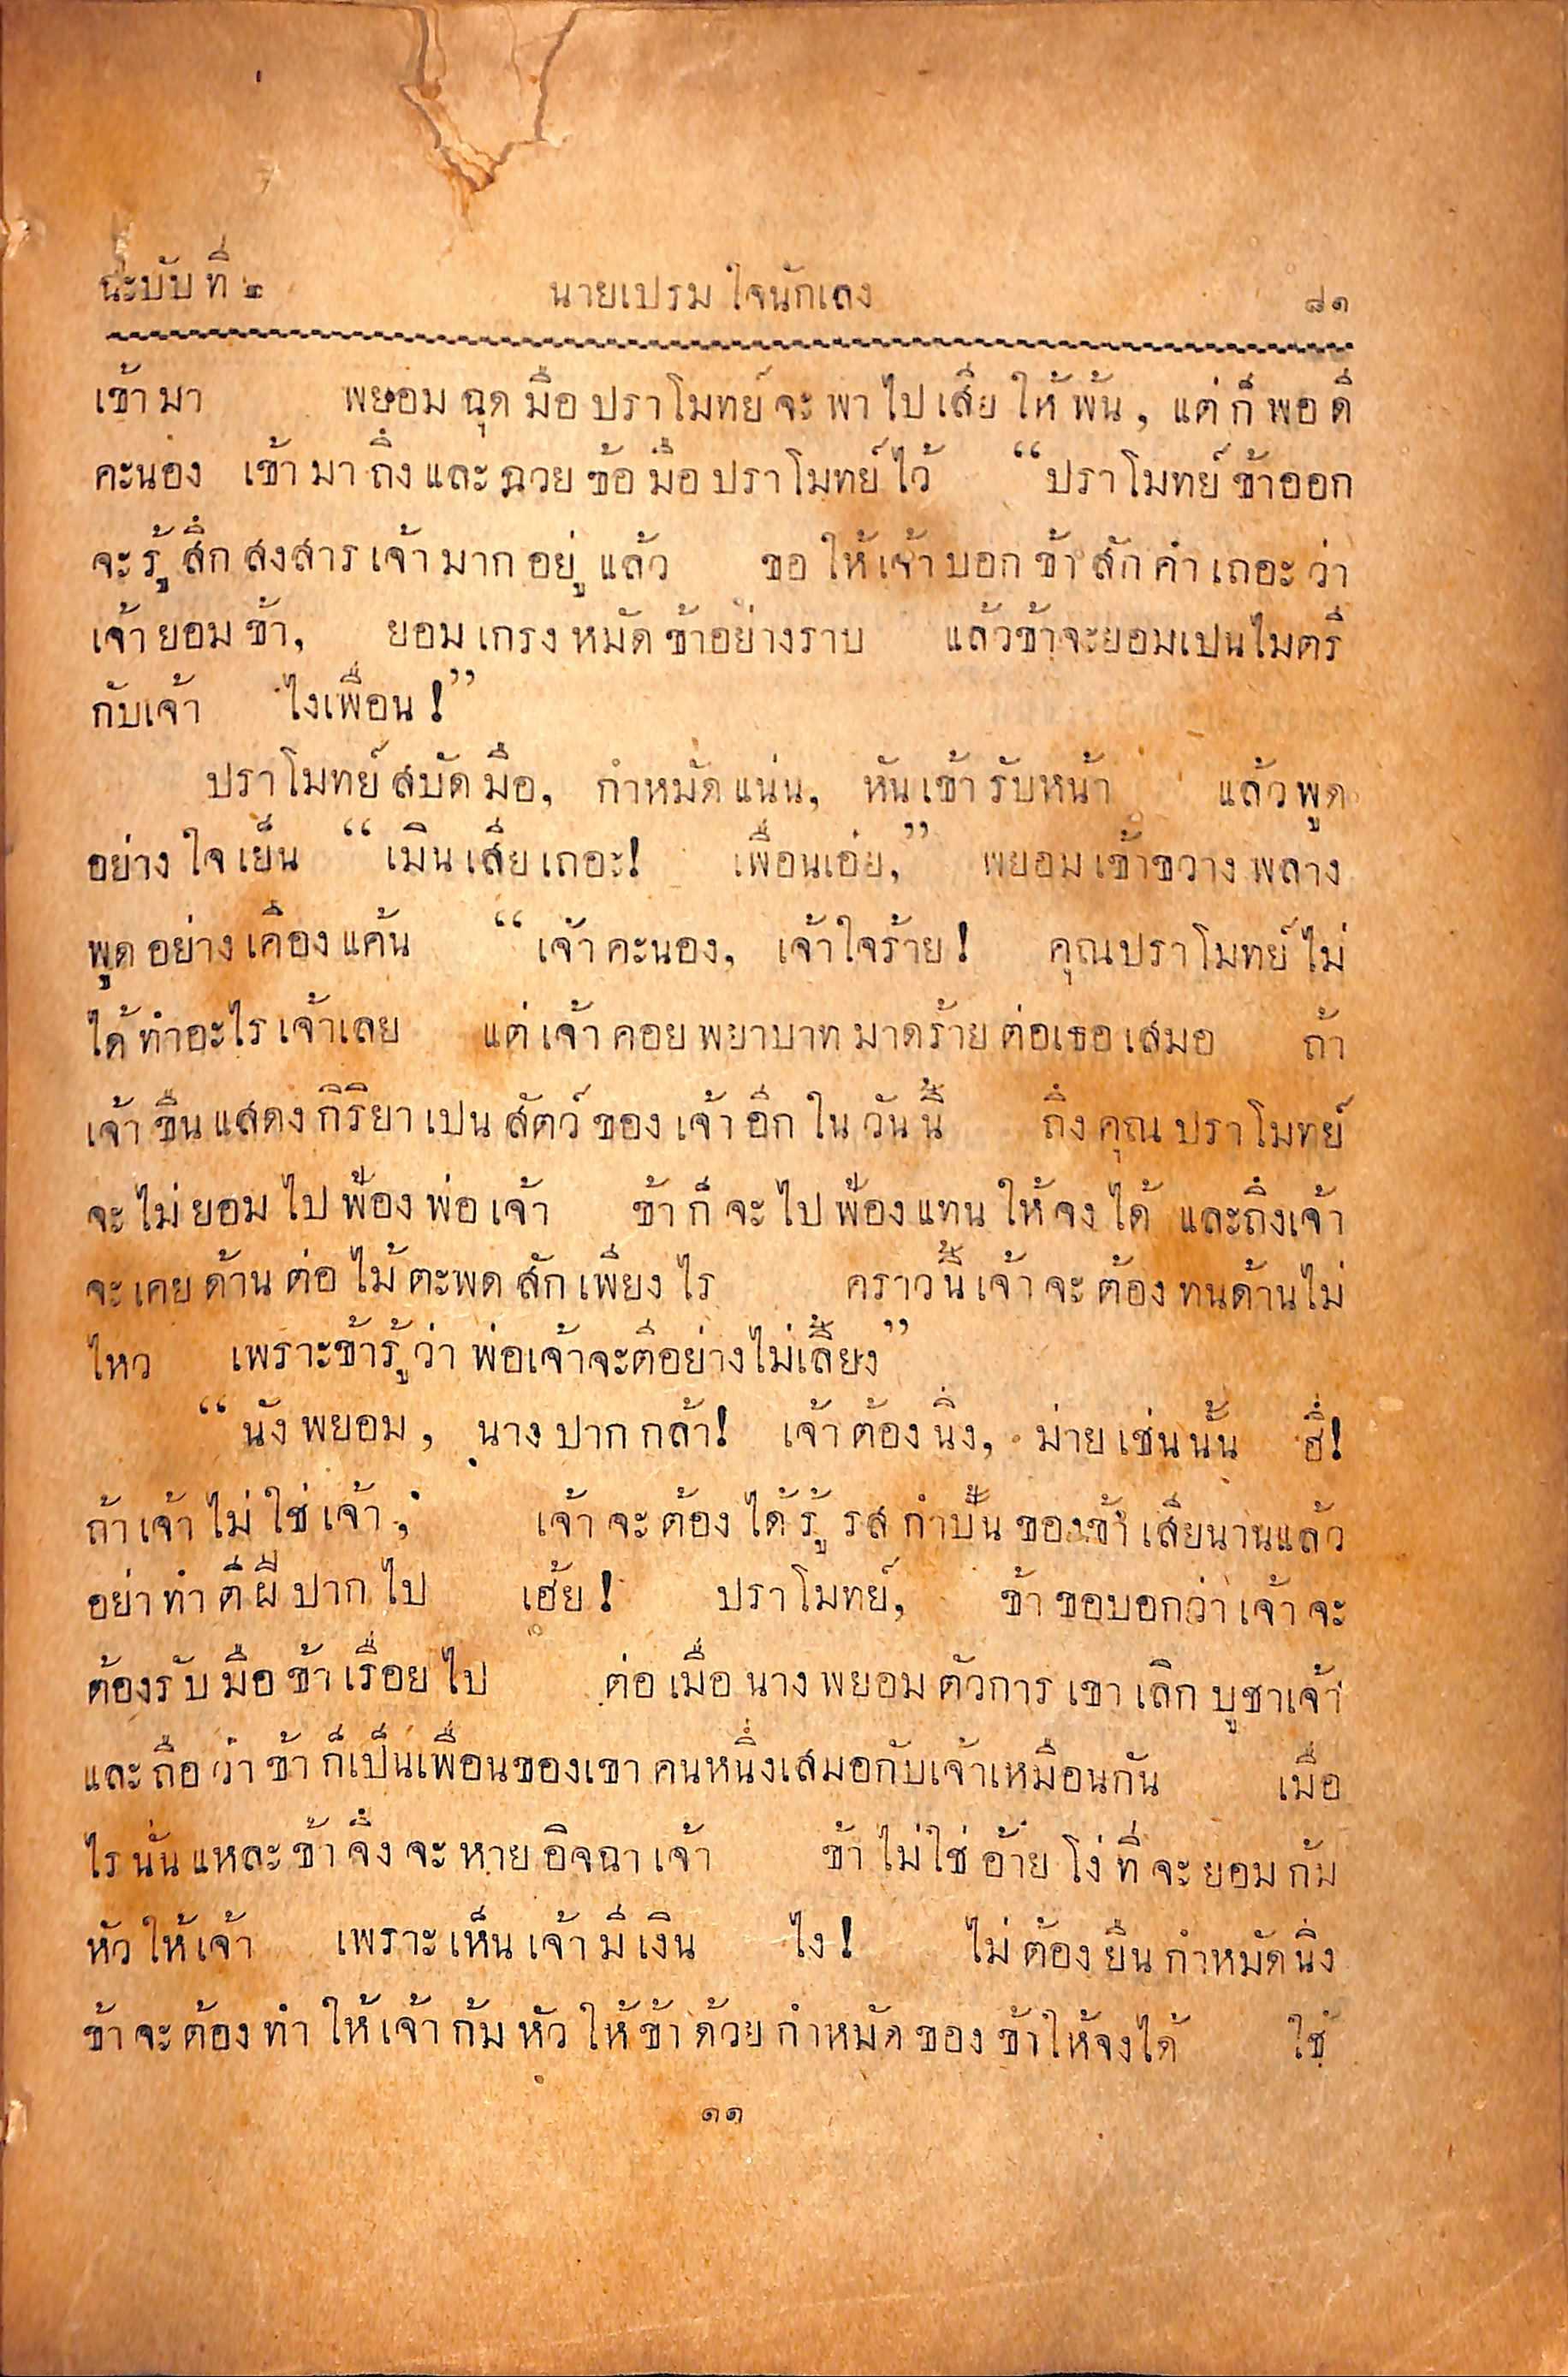 ฉะบับที่ ๒ นายเปรม ใจนักเลง ๘๑
เข้ามา พยอมฉุดมือปราโมทย์จะพาไปเสียให้พ้น, แต่ก็พอดี
คะนอง เข้ามาถึงและฉวยข้อมือปราโมทย์ไว้ “ปราโมทย์ข้าออก
จะรู้สึกสงสารเจ้ามากอยู่แล้ว ขอให้เจ้าบอกข้าสักคำเถอะว่า
เจ้ายอมข้า, ยอมเกรงหมัดข้าอย่างราบ แล้วข้าจะยอมเปนไมตรี
กับเจ้า ไงเพื่อน!”
ปราโมทย์สบัดมือ, กำหมัดแน่น, หันเข้ารับหน้า แล้วพูด
อย่างใจเย็น “เมินเสียเถอะ! เพื่อนเอ๋ย,” พยอมเข้าขวางพลาง
พูดอย่างเคืองแค้น “เจ้าคะนอง, เจ้าใจร้าย! คุณปราโมทย์ไม่
ได้ทำอะไรเจ้าเลย แต่เจ้าคอยพยาบาทมาดร้ายต่อเธอเสมอ ถ้า
เจ้าขืนแสดงกิริยาเปนสัตว์ของเจ้าอีกในวันนี้ ถึงคุณปราโมทย์
จะไม่ยอมไปฟ้องพ่อเจ้า ข้าก็จะไปฟ้องแทนให้จงได้ และถึงเจ้า
จะเคยด้านต่อไม้ตะพดสักเพียงไร คราวนี้เจ้าจะต้องทนด้านไม่
ไหว เพราะข้ารู้ว่าพ่อเจ้าจะตีอย่างไม่เลี้ยง”
“นังพยอม, นางปากกล้า! เจ้าต้องนิ่ง, ม่ายเช่นนั้น ฮึ่!
ถ้าเจ้าไม่ใช่เจ้า; เจ้าจะต้องได้รู้รสกำปั้นของข้าเสียนานแล้ว
อย่าทำตีฝีปากไป เฮ้ย! ปราโมทย์, ข้าขอบอกว่าเจ้าจะ
ต้องรับมือข้าเรื่อยไป ต่อเมื่อนางพยอมตัวการเขาเลิกบูชาเจ้า
และถือว่าข้าก็เป็นเพื่อนของเขาคนหนึ่งเสมอกับเจ้าเหมือนกัน เมื่อ
ไรนั่นแหละข้าจึงจะหายอิจฉาเจ้า ข้าไม่ใช่อ้ายโง่ที่จะยอมก้ม
หัวให้เจ้า เพราะเห็นเจ้ามีเงิน ไง! ไม่ต้องยืนกำหมัดนิ่ง
ข้าจะต้องทำให้เจ้าก้มหัวให้ข้าด้วยกำหมัดของข้าให้จงได้ ใช่
๑๑